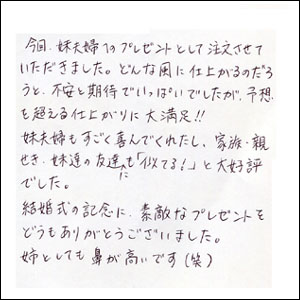 今回、妹夫婦へのプレゼントとして注文させて
いただきました。どんな風に仕上がるのだろ
うと、不安と期待でいっぱいでしたが、予想
を超える仕上がりに大満足!!
妹夫婦もすごく喜んでくれたし、家族・親
せき・妹達の友達にも「似てる!」と大好評
でした。
結婚式の記念に、素敵なプレゼントを
どうもありがとうございました。
姉としても鼻が高いです(笑)